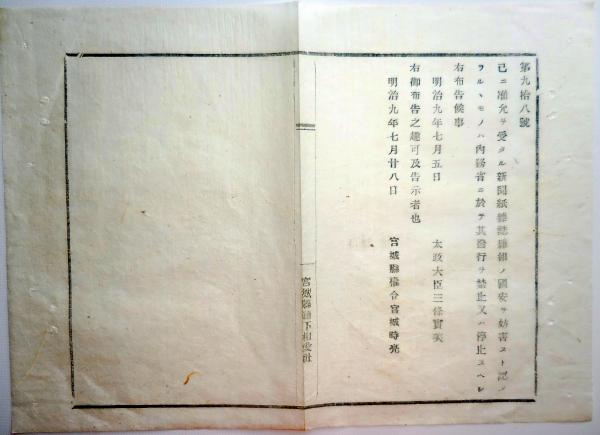 第九拾八號
己ニ准允ヲ受タル新聞紙雜誌雜報ノ國安ヲ妨害スト認メ
ラルヽモノハ内務省ニ於テ其發行ヲ禁止又ハ停止スヘシ
右布告候事
明治九年七月五日
太政大臣三條實美
右御布告之趣可及告示者也
明治九年七月廿八日
宮城縣權令宮城時亮
宮城縣 下 社